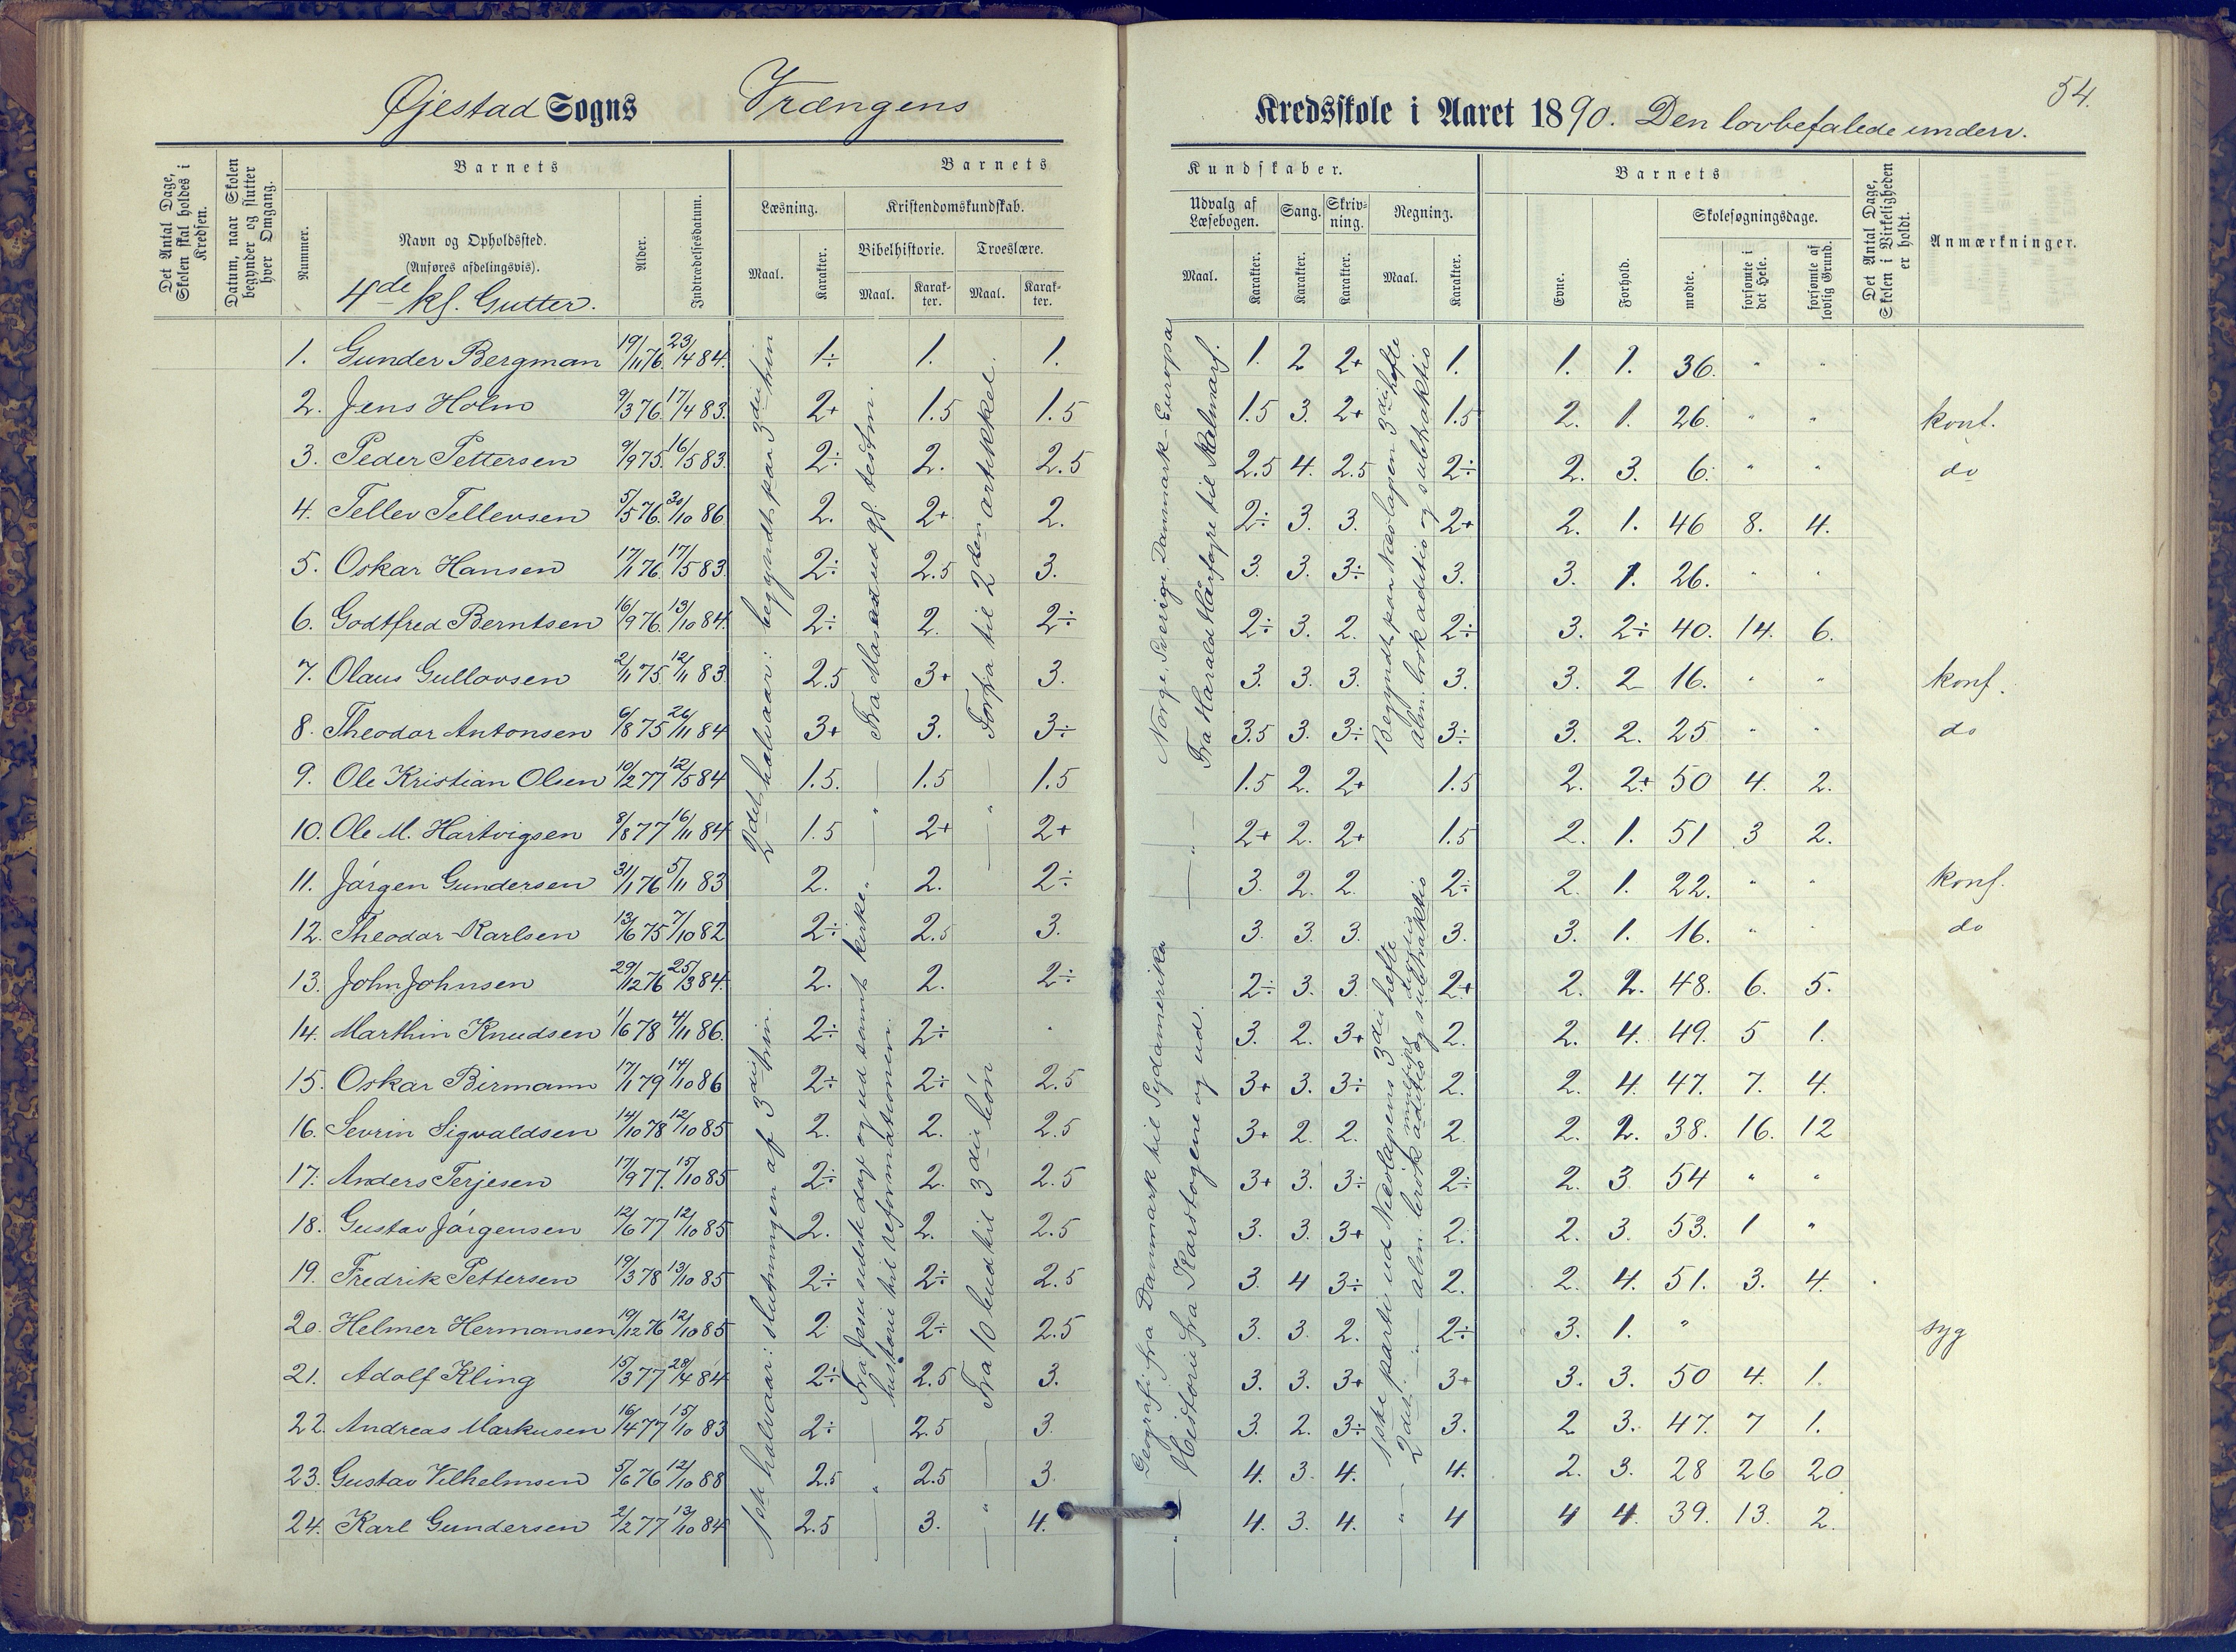 54.
Øjestad Sogns Vrængens Kredsskole i Aaret 1890. Den lovbefalede underv.
Det Antal Dage, Skolen skal holdes i Kredsen.
Datum, naar Skolen begynder og slutter hver Omgang.
Barnets
Nummer.
Navn og Opholdssted.
(Anføres afdelingsvis).
4de kl. Gutter.
Alder.
Indtrædelsesdatum.
Barnets Kundskaber.
Læsning.
Maal.
Karakter.
Kristendomskundskab.
Bibelhistorie.
Maal.
Karakter.
Troeslære.
Maal.
Karakter.
Udvalg af Læsebogen.
Maal.
Karakter.
Sang.
Karakter.
Skrivning.
Karakter.
Regning.
Maal.
Karakter.
Barnets
Evne.
Forhold.
Skolesøgningsdage.
mødte.
forsømte i det Hele.
forsømte af lovlig Grund.
Det Antal Dage, Skolen i Virkeligheden er holdt.
Anmærkninger.
1. Gunder Bergman 19/11 76. 23/4 84. 1÷ 1. 1. 1. 2 2+ 1. 1. 1. 36. " "
2. Jens Holm 9/3 76. 17/4 83. 2+ 1.5 1.5 1.5 3. 2+ 1.5 2. 1. 26. " " konf.
3. Peder Pettersen 9/9 75. 16/5 83. 2÷ 2. 2.5 2.5 4. 2.5 2÷ 2. 3. 6. " " do
4. Tellev Tellevsen 5/5 76. 30/10 86. 2. 2+ 2. 2÷ 3. 3. 2+ 2. 1. 46 8. 4.
5. Oskar Hansen 17/1 76. 17/5 83. 2÷ 2.5 3. 3. 3. 3÷ 3. 3. 1. 26. " "
6. Godtfred Berntsen 16/9 76. 13/10 84. 2÷ 2. 2÷ 2÷ 3. 2. 2÷ 3. 2÷ 40. 14. 6.
7. Olaus Gullovsen 2/11 75. 12/11 83. 2.5 3+ 3. 3. 3. 3. 3. 3. 2 16. " " konf.
8. Theodor Antonsen 6/8 75 26/11 84 3+ 3. 3÷ 3.5 3. 3÷ 3÷ 3. 2. 25 " " do
9. Ole Kristian Olsen 10/2 77 12/5 84 1.5. 1.5 1.5 1.5 2. 2+ 1.5 2. 2+ 50 4. 2.
10. Ole M. Hartvigsen 8/8 77 16/11 84 1.5 2+ 2+ 2+ 2. 2+ 1.5 2. 1. 51 3 2.
11. Jørgen Gundersen 31/1 76 5/11 83 2. 2. 2÷ 3. 2. 2. 2÷ 2. 1. 22. " " konf.
12. Theodor Karlsen 13/6 75 7/10 82 2÷ 2.5 3. 3. 3. 3. 3. 3. 1. 16. " " do
13. John Johnsen 29/12 76 25/3 84. 2. 2. 2÷ 2÷ 3. 3. 2+ 2. 2. 48. 6. 5.
14. Marthin Knudsen 1/6 78 4/11 86. 2÷ 2÷ " 3. 2. 3+ 2. 2. 4. 49. 5 1.
15. Oskar Birmann 17/1 79 14/10 86 2÷ 2÷ 2.5 3+ 3. 3÷ 2. 2. 4. 47. 7. 4.
16. Sevrin Sigvaldsen 14/10 78 12/10 85 2. 2. 2.5 3+ 2. 2. 2. 2. 2. 38. 16. 12
17. Anders Terjesen 17/9 77. 15/10 85 2÷ 2. 2.5 3+ 3. 3÷ 2÷ 2. 3. 54 " "
18. Gustav Jørgensen 12/6 77 12/10 85 2. 2. 2.5 3. 3. 3+ 2. 2. 3. 53. 1 "
19. Fredrik Pettersen 19/3 78 13/10 85 2÷ 2÷ 2.5 3. 4 3÷ 2. 2. 4. 51. 3. 4.
20. Helmer Hermansen 19/12 76 12/10 85 2 2÷ 2.5 3. 3. 2. 2÷ 3. 1. " syg
21. Adolf Kling 15/3 77 28/4 84 2÷ 2.5 3. 3. 3. 3+ 3+ 3. 3. 50 4. 1.
22. Andreas Markusen 16/4 77 15/10 83 2÷ 2.5 3. 3. 2. 3÷ 3. 2 3. 47. 7 1.
23. Gustav Vilhelmsen 5/6 76 12/10 88 2.5 2.5 3. 4. 3. 4. 4. 2. 3. 28 26 20
24. Karl Gundersen 2/2 77 13/10 84 2.5 3. 4. 4. 3. 4. 4 4 4. 39. 13. 2.
2det halvaar: begyndt paa 3die trin
1ste halvaar: slutningen af 3die trin.
Fra Jesu sidste dage og ud samt kirke-
historie til reformationen.
Forfra til 2den artikkel.
Fra 10 bud til 3die bøn
Norge, Sverige, Danmark – Europa
Fra Harald Hårfagre til Kalmarf.
Geografi fra Danmark til Sydamerika
Historie fra Korstogene og ud.
Begyndt paa Nicolajsen 3die hefte
alm. brøk aditio og subtraktio
1ste parti ud Nicolajsens 3die hefte
2det — " — alm. brøk aditio og subtraktio